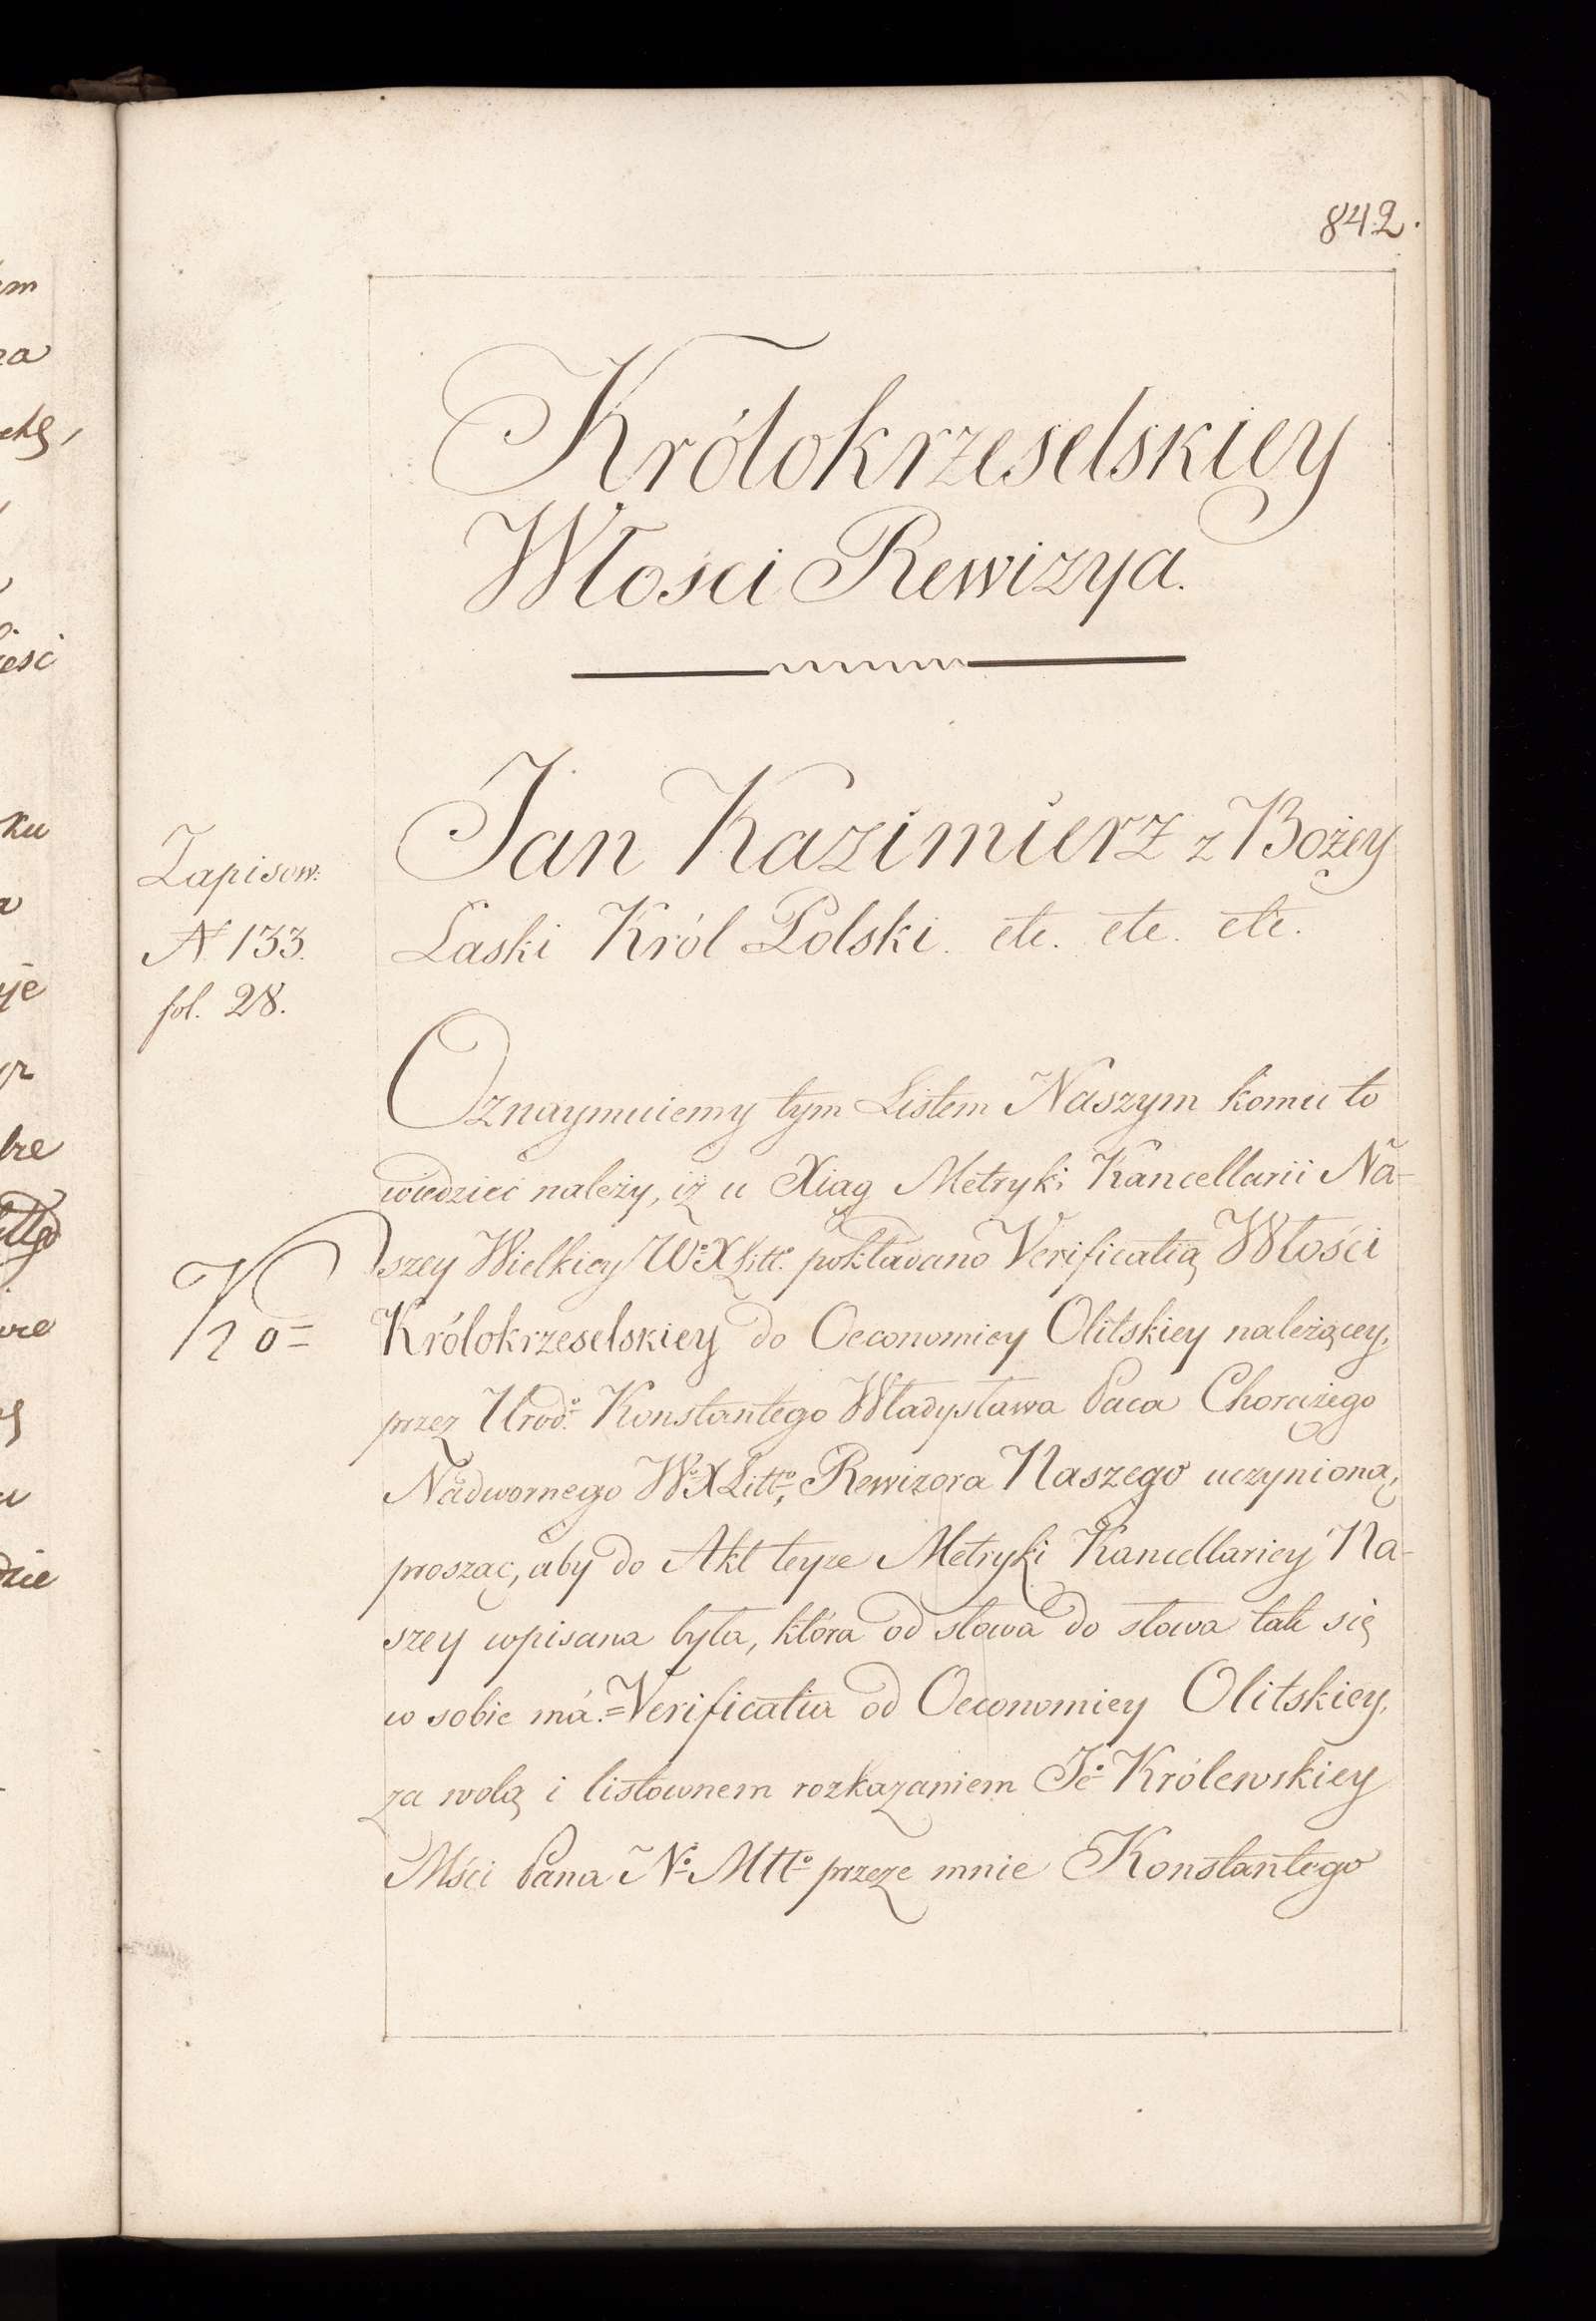 842.
Królokrzeselskiey
Włości Rewizya.
Jan Kazimierz z Bożey
Łaski Król Polski. etc. etc. etc.
Zapisow:
N 133.
fol. 28.
Oznaymuiemy tym Listem Naszym komu to
wiedzieć należy, iż u Xiąg Metryki Kancellarii Na-
szey Wielkiey Wo X Litt. pokładano Verificatią Włości
Królokrzeselskiey do Oeconomiey Olitskiey należącey,
przez Urodo. Konstantego Władysława Paca Chorążego
Nadwornego Wo X Litto, Rewizora Naszego uczynioną,
prosząc, aby do Akt teyże Metryki Kancellariey Na-
szey wpisana była, która od słowa do słowa tak się
w sobie má.=Verificatia od Oeconomiey Olitskiey,
za wolą i listownem rozkazaniem Jeo Królewskiey
Mści Pana No Mtto przeze mnie Konstantego